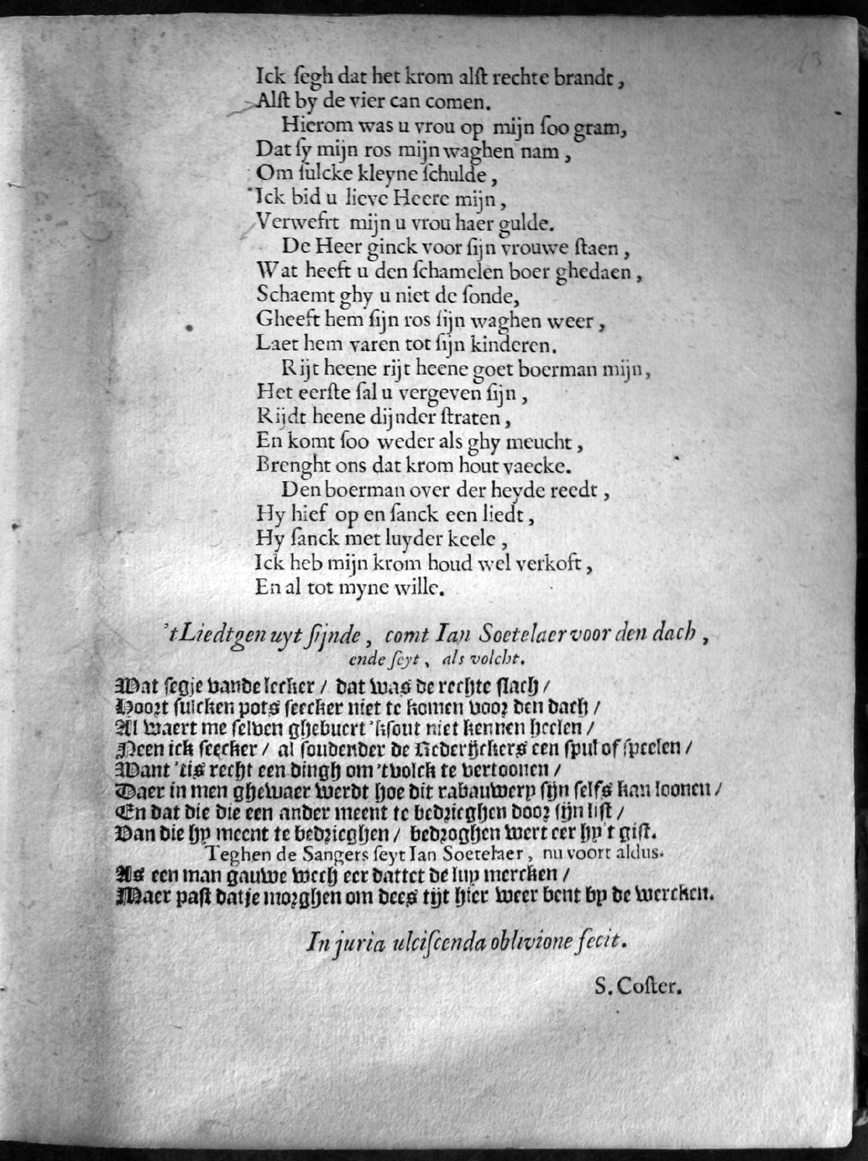 Ick ſegh dat het krom alſt rechte brandt,
Alſt by de vier can comen.
Hierom was u vrou op mijn ſoo gram,
Dat ſy mijn ros mijn waghen nam,
Om ſulcke kleyne ſchulde,
Ick bid u lieve Heere mijn,
Verwefrt mijn u vrou haer gulde.
De Heer ginck voor ſijn vrouwe ſtaen,
Wat heeft u den ſchamelen boer ghedaen,
Schaemt ghy u niet de ſonde,
Gheeft hem ſijn ros ſijn waghen weer,
Laet hem varen tot ſijn kinderen.
Rijt heene rijt heene goet boerman mijn,
Het eerſte ſal u vergeven ſijn,
Rijdt heene dijnder ſtraten,
En komt ſoo weder als ghy meucht,
Brenght ons dat krom hout vaecke.
Den boerman over der heyde reedt,
Hy hief op en ſanck een liedt,
Hy ſanck met luyder keele,
Ick heb mijn krom houd wel verkoft,
En al tot myne wille.
'tLiedtgen uyt ſijnde, comt Ian Soetelaer voor den dach,
ende ſeyt, als volcht.
Wat ſegje vande lecker / dat was de rechte ſlach /
Hoort ſulcken pots ſeecker niet te komen voor den dach /
Al waert me ſelven ghebuert 'kſout niet kennen heelen /
Neen ick ſeecker / al ſoudender de Rederijckers een ſpul of ſpeelen /
Want 'tis recht een dingh om 'tvolck te vertoonen /
Daer in men ghewaer werdt hoe dit rabauwerp ſijn ſelfs kan loonen /
En dat die die een ander meent te bedrieghen door ſijn liſt /
Van die hy meent te bedrieghen / bedroghen wert eer hy't giſt.
Teghen de Sangers ſeyt Ian Soetelaer, nu voort aldus.
As een man gauwe wech eer dattet de luy mercken /
Maer paſt datje morghen om dees tijt hier weer bent by de wercken.
In juria ulciſcenda oblivione fecit.
S. Coſter.